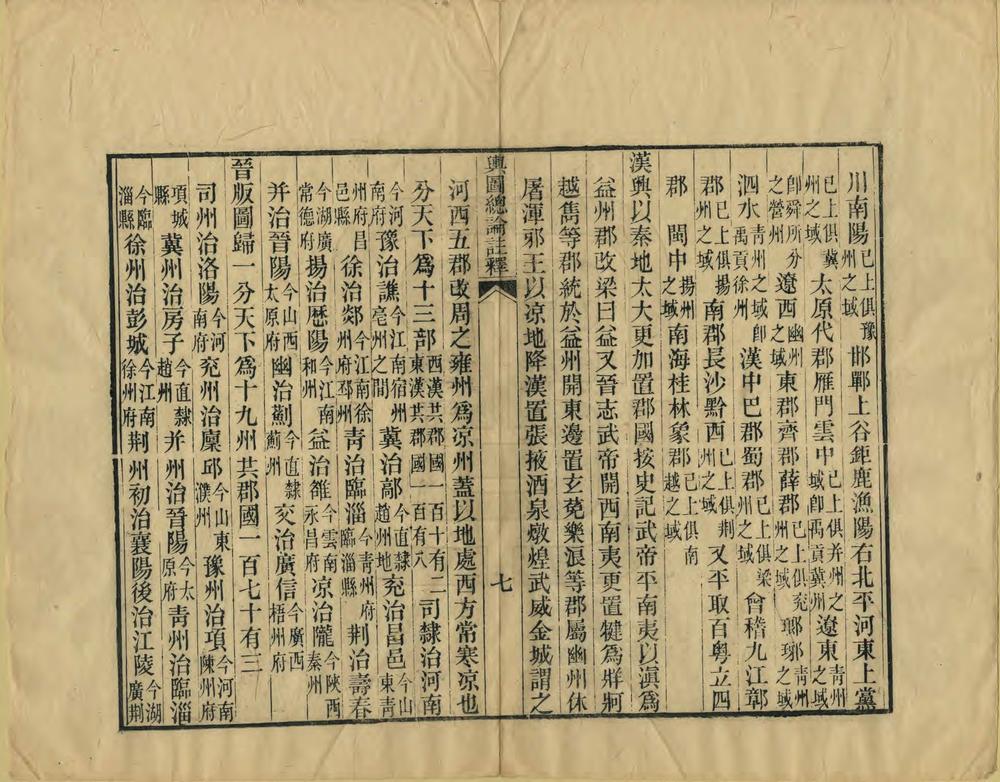 川南陽已上俱豫州之域邯鄲上谷鉅鹿漁陽右北平河東上黨
已上俱冀州之域太原代郡雁門雲中已上俱并州之域卽禹貢冀州遼東之域青州
卽舜所分之營州遼西幽州之域東郡齊郡薛郡已上俱兖州之域瑯琊青州之域
泗水青州之域卽禹貢徐州漢中巴郡蜀郡已上俱梁州之域會稽九江鄣
郡已上俱揚州之域南郡長沙黔西已上俱荆州之域又平取百粵立四
郡閩中揚州之域南海桂林象郡已上俱南越之域
漢興以秦地太大更加置郡國按史記武帝平南夷以滇爲
益州郡改梁曰益又晉志武帝開西南夷更置犍爲牂牁
越雋等郡統於益州開東邊置玄菟樂浪等郡屬幽州休
屠渾邪王以凉地降漢置張掖酒泉燉煌武威金城謂之
輿圖總論註釋 七
河西五郡改周之雍州爲凉州蓋以地處西方常寒凉也
分天下爲十三部西漢共郡國一百十有二東漢共郡國一百有八司隸治河南
今河南府豫治譙今江南宿州亳州之間冀治鄗今直隸趙州地兖治昌邑今山東青
州府昌邑縣徐治郯今江南徐州府邳州青治臨淄今青州府臨淄縣荆治壽春
今湖廣常德府揚治歷陽今江南和州益治雒今雲南永昌府凉治隴今陝西秦州
并治晉陽今山西太原府幽治薊今直隸薊州交治廣信今廣西梧州府
晉版圖歸一分天下爲十九州共郡國一百七十有三
司州治洛陽今河南府兖州治廩邱今山東濮州豫州治項今河南陳州府
項城縣冀州治房子今直隸趙州并州治晉陽今太原府靑州治臨淄
今臨淄縣徐州治彭城今江南徐州府荆州初治襄陽後治江陵今湖廣荆